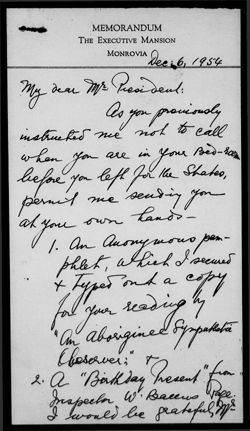 MEMORANDUM
THE EXECUTIVE MANSION
MONROVIA
Dec. 6, 1954
My dear Mr. President:
As you previously
instructed me not to call
when you are in your Bed-room
before you left for the States,
permit me sending you
at your own hands—
1. An Anonymous pam-
phlet, which I secured
& typed out a copy
for your reading by
"An Aborigines Sympathetic
Observer"; &
2. A "Birthday Present" from
Inspector W. Bacchus Page.
I would be grateful, Mr.